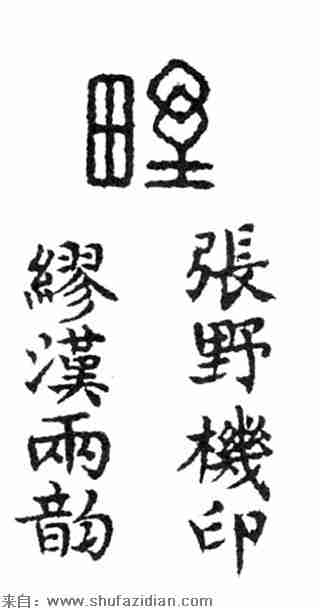 野
張野機印
繆漢兩韵
来自：www.shufazidian.com